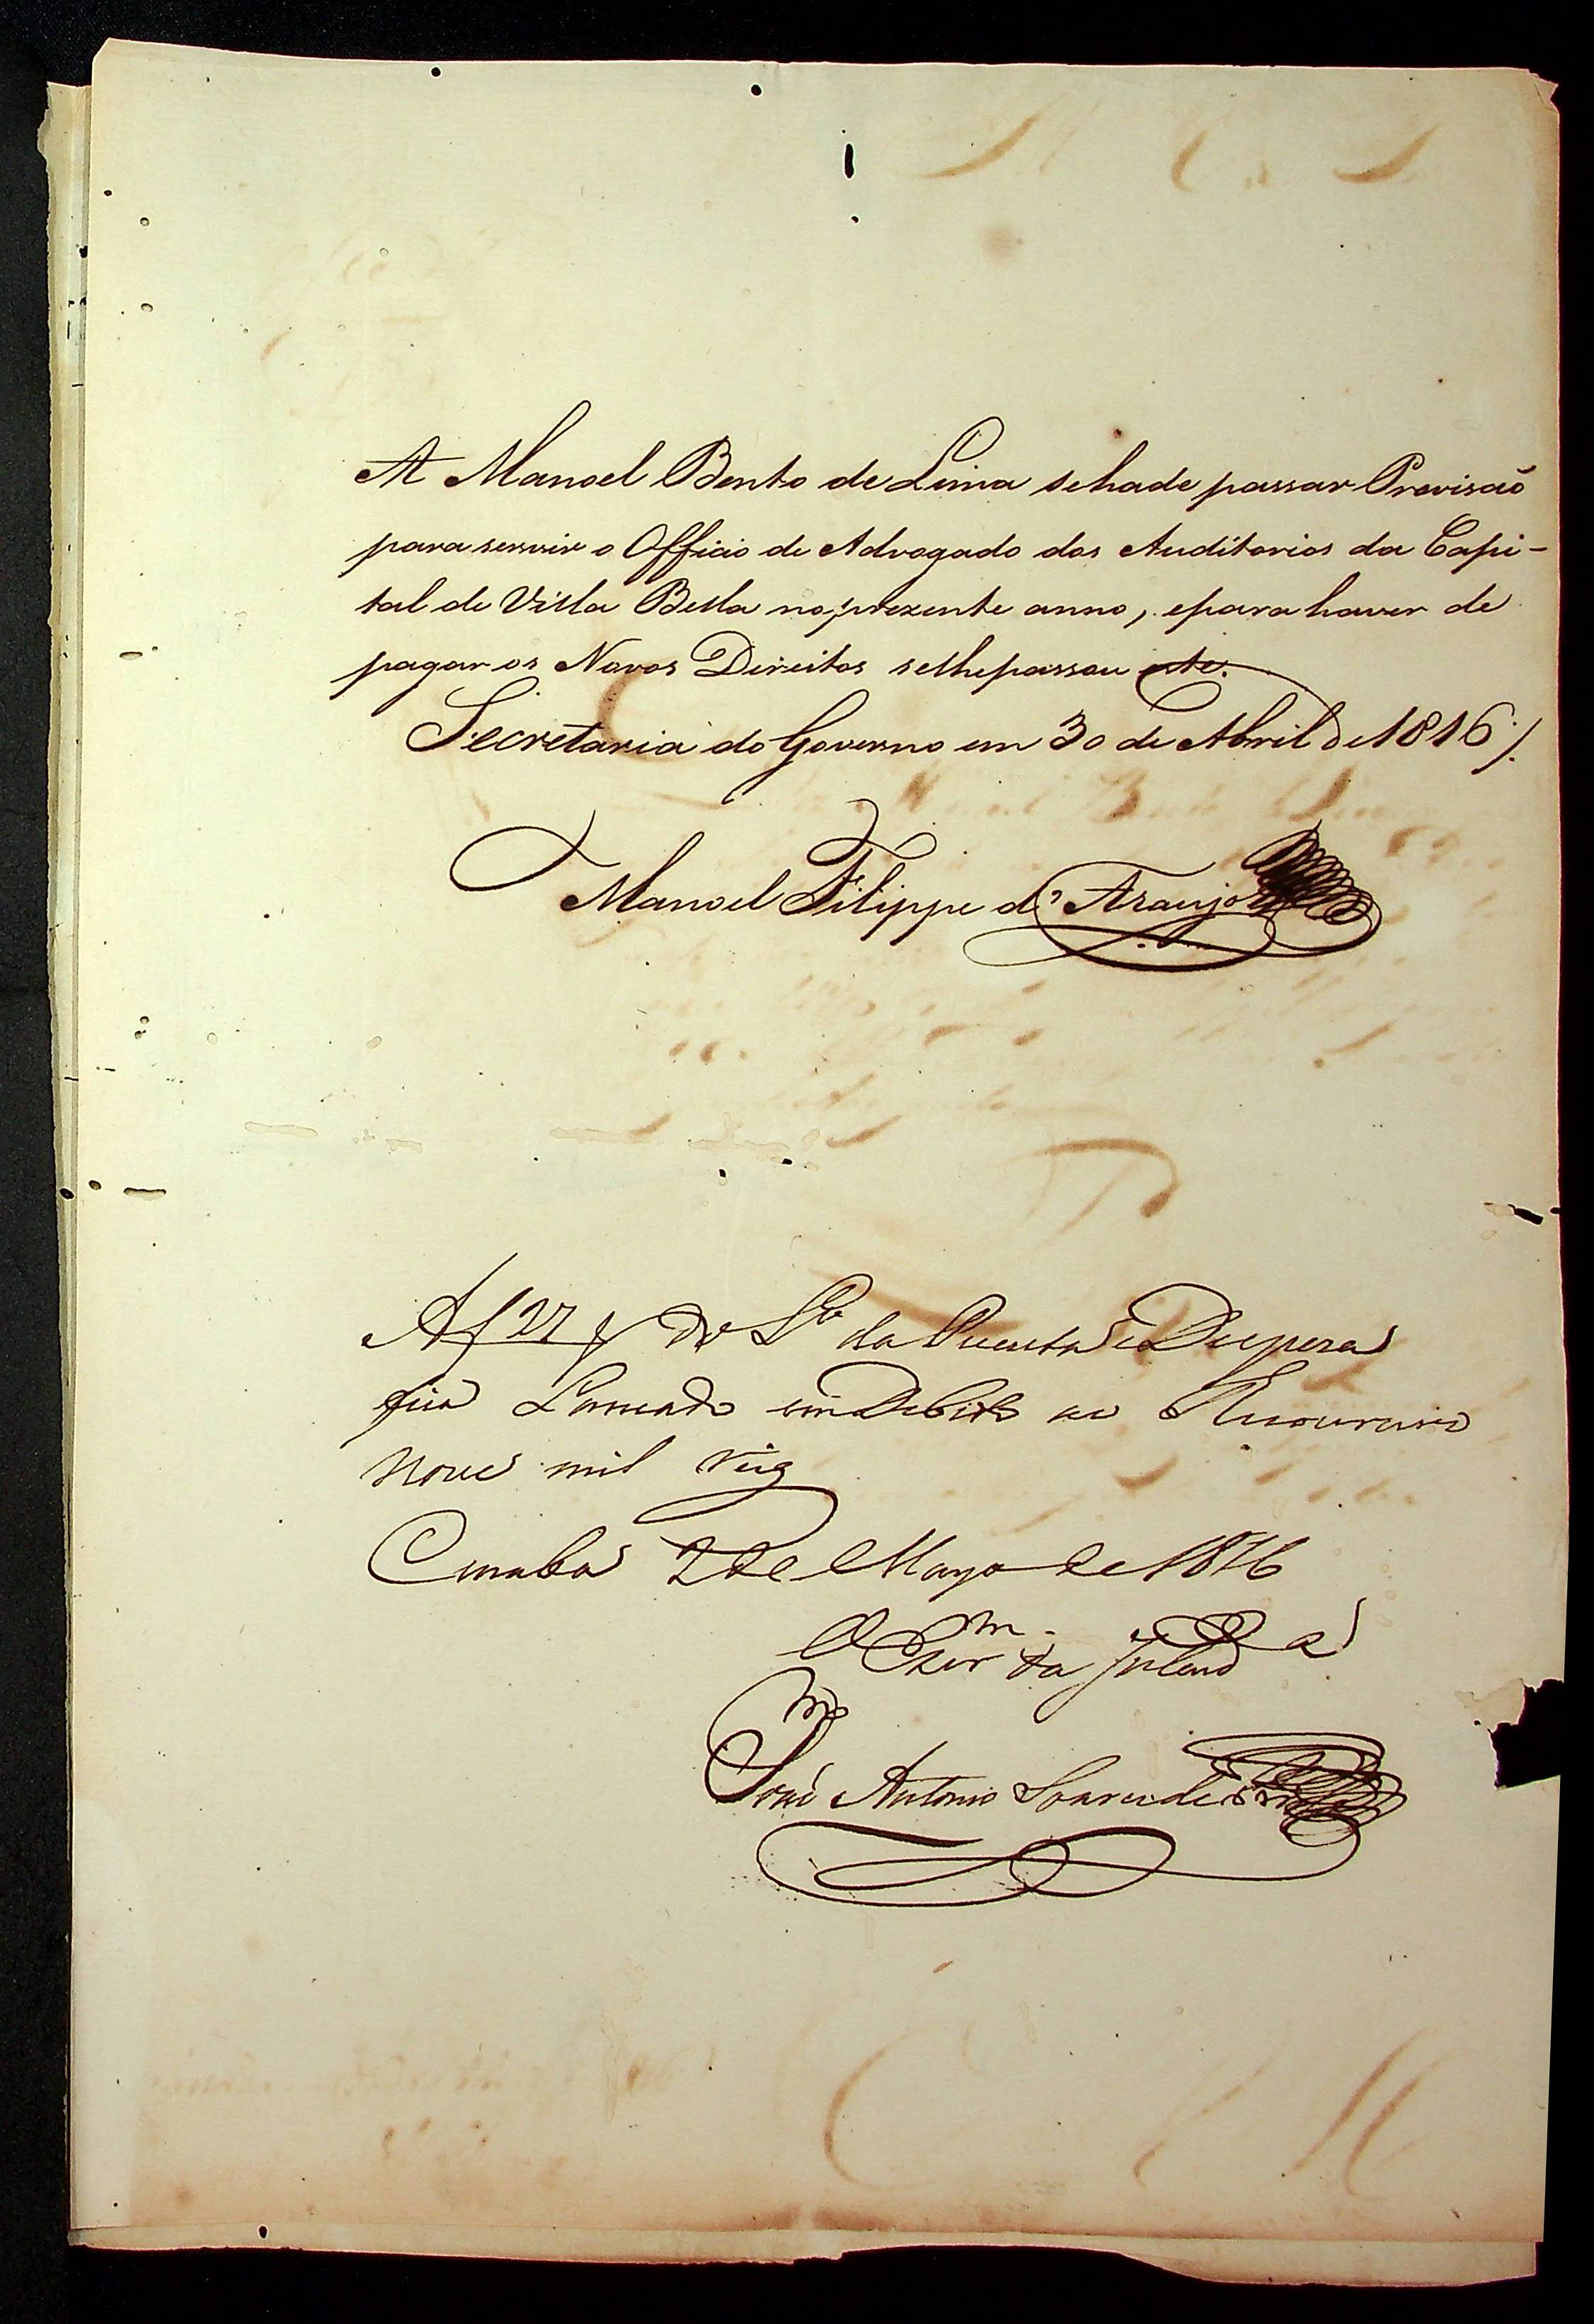 A Manoel Bento de Lima sehade passar Provisaõ
para servir o Officio de Advogado dos Auditorios da Capi-
tal de Villa Bella no prezente anno, epara haver de
pagar os Novos Direitos selhe passou este.
Secretaria do Governo em 30 de Abril de 1816
Manoel Filippe d'Araujo
A f 27 do Lº da Receita e Despeza
fica Lancado em Debito ao Thezoureiro
nove mil reis
Cuiaba 2 de Mayo de 1816
O Escr da
José Antonio Soares de